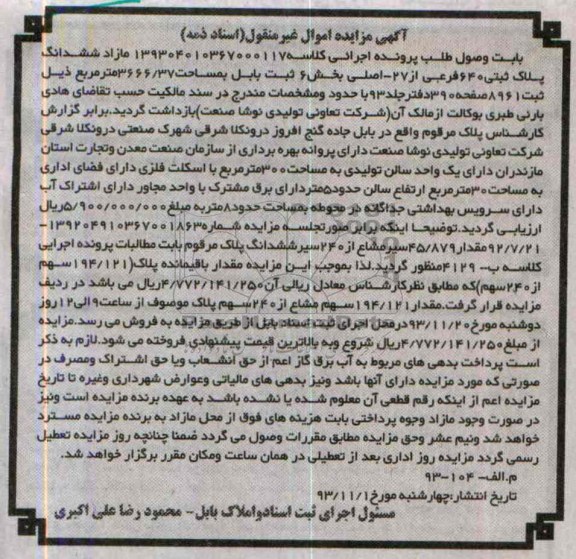 آگهی مزایده اموال غیر منقول(اسناد ذمه)
بابت وصول طلب پرونده اجرائی کلاسه ۱۳۹۳۰۴۰۱۰۳۶۷۰۰۰۱۱۷ مازاد ششدانگ
پلاک ثبتی ۶۴۰فرعی از۲۷-اصلی بخش۶ ثبت بابل بمساحت۳۶۶۶/۳۷مترمربع ذیل
ثبت۸۹۶۱صفحه۳۹۰دفترجلد۹۳با حدود ومشخصات مندرج در سند مالکیت حسب تقاضای هادی
بارنی طبری بوکالت ازمالک آن(شرکت تعاونی تولیدی نوشا صنعت)بازداشت گردید.برابر گزارش
کارشناس پلاک مرقوم واقع در بابل جاده گنج افروز درونکلا شرقی شهرک صنعتی درونکلا شرقی
شرکت تعاونی تولیدی نوشا صنعت دارای پروانه بهره برداری از سازمان صنعت معدن وتجارت استان
مازندران دارای یک واحد سالن تولیدی به مساحت۳۰۰مترمربع با اسکلت فلزی دارای فضای اداری
به مساحت۳۰مترمربع ارتفاع سالن حدود۵متردارای برق مشترک با واحد مجاور دارای اشتراک آب
دارای سرویس بهداشتی جداگانه در محوطه بمساحت حدود۸متربه مبلغ۵/۹۰۰/۰۰۰/۰۰۰ریال
ارزیابی گردید.توضیحا اینکه برابر صورتجلسه مزایده شماره۱۳۹۲۰۴۹۱۰۳۶۷۰۰۱۸۶۳-
۹۲/۷/۲۱مقدار۴۵/۸۷۹سیرمشاع از۲۴۰سیرششدانگ پلاک مرقوم بابت مطالبات پرونده اجرایی
کلاسه ب- ۴۱۲۹منظور گردید.لذا بموجب این مزایده مقدار باقیمانده پلاک(۱۹۴/۱۲۱سهم
از۲۴۰سهم)که مطابق نظرکارشناس معادل ریالی آن۴/۷۷۲/۱۴۱/۲۵۰ریال می باشد در ردیف
مزایده قرار گرفت.مقدار۱۹۴/۱۲۱سهم مشاع از۲۴۰سهم پلاک موصوف از ساعت۹الی۱۲روز
دوشنبه مورخ۹۳/۱۱/۲۰درمحل اجرای ثبت اسناد بابل از طریق مزایده به فروش می رسد.مزایده
از مبلغ۴/۷۷۲/۱۴۱/۲۵۰ریال شروع وبه بالاترین قیمت پیشنهادی فروخته می شود.لازم به ذکر
است پرداخت بدهی های مربوط به آب برق گاز اعم از حق انشعاب ویا حق اشتراک ومصرف در
صورتی که مورد مزایده دارای آنها باشد ونیز بدهی های مالیاتی وعوارض شهرداری وغیره تا تاریخ
مزایده اعم از اینکه رقم قطعی آن معلوم شده یا نشده باشد به عهده برنده مزایده است ونیز
در صورت وجود مازاد وجوه پرداختی بابت هزینه های فوق از محل مازاد به برنده مزایده مسترد
خواهد شد ونیم عشر وحق مزایده مطابق مقررات وصول می گردد ضمنا چنانچه روز مزایده تعطیل
رسمی گردد مزایده روز اداری بعد از تعطیلی در همان ساعت ومکان مقرر برگزار خواهد شد.
م.الف- ۱۰۴-۹۳
تاریخ انتشار:چهارشنبه مورخ۹۳/۱۱/۱
مسئول اجرای ثبت اسنادواملاک بابل- محمود رضا علی اکبری